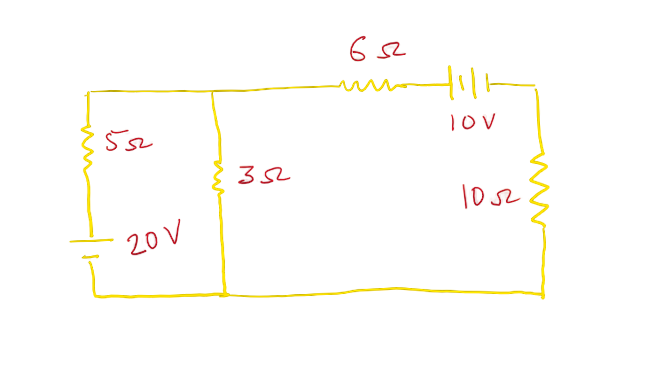 6Ω
10V
5Ω
3Ω
10Ω
20V